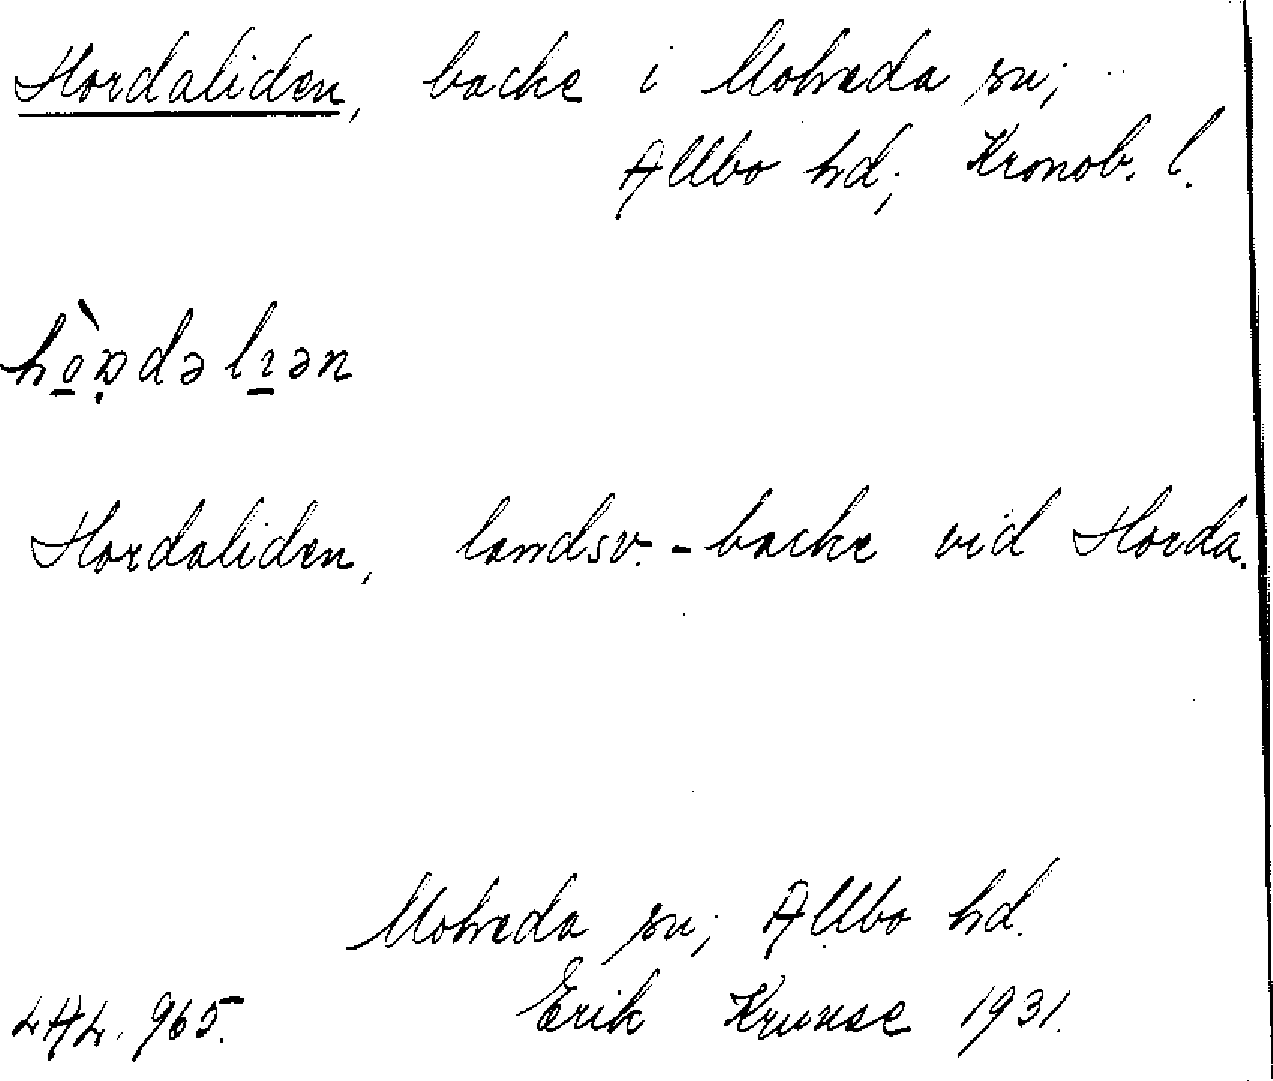 Hordaliden, backe i Moheda sn;
Allbo hd; Kronob. l.
Hordaliden, landsv.-backe vid Horda.
Moheda sn; Allbo hd.
Erik Kruuse 1931.
LAL. 965.